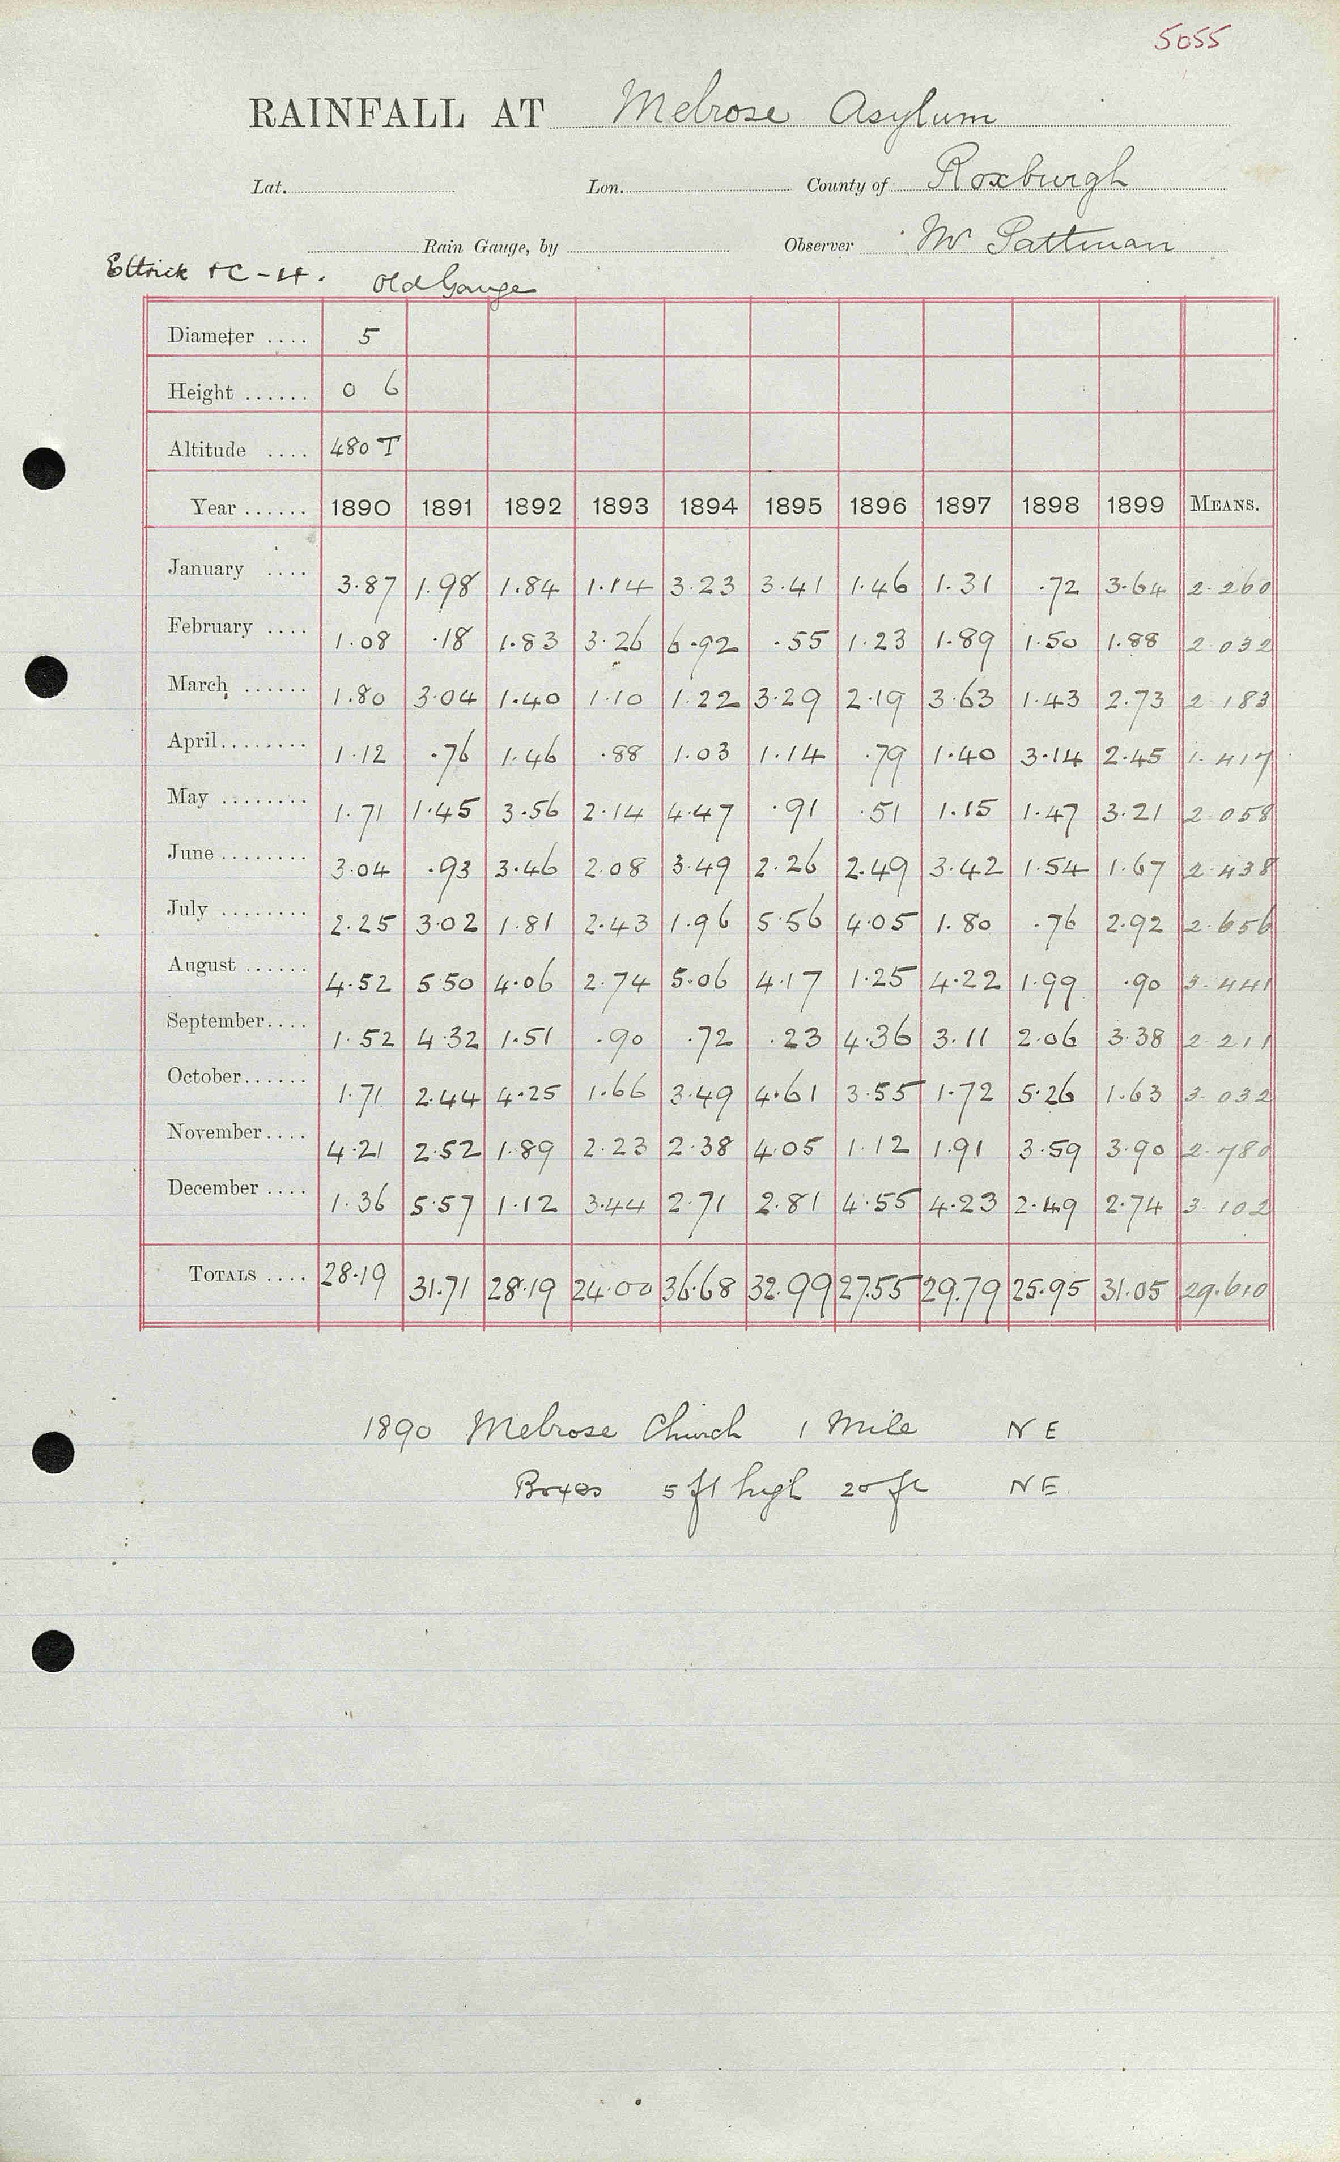 5055
RAINFALL AT Melrose Asylum
Lat. Lon. County of Roxburgh
Rain Gauge, by Observer Mr Pattman
Ettrick &C - 4.
Old Gauge
Diameter .... 5
Height ...... 0 6
Altitude .... 480 T
Year ...... 1890 1891 1892 1893 1894 1895 1896 1897 1898 1899 MEANS.
January .... 3.87 1.98 1.84 1.14 3.23 3.41 1.46 1.31 .72 3.64 2.260
February .... 1.08 .18 1.83 3.26 6.92 .55 1.23 1.89 1.50 1.88 2.032
March ...... 1.80 3.04 1.40 1.10 1.22 3.29 2.19 3.63 1.43 2.73 2.183
April ........ 1.12 .76 1.46 .88 1.03 1.14 .79 1.40 3.14 2.45 1.417
May ........ 1.71 1.45 3.56 2.14 4.47 .91 .51 1.15 1.47 3.21 2.058
June ........ 3.04 .93 3.46 2.08 3.49 2.26 2.49 3.42 1.54 1.67 2.438
July ........ 2.25 3.02 1.81 2.43 1.96 5.56 4.05 1.80 .76 2.92 2.656
August ...... 4.52 5.50 4.06 2.74 5.06 4.17 1.25 4.22 1.99 .90 3.441
September .... 1.52 4.32 1.51 .90 .72 .23 4.36 3.11 2.06 3.38 2.211
October ...... 1.71 2.44 4.25 1.66 3.49 4.61 3.55 1.72 5.26 1.63 3.032
November .... 4.21 2.52 1.89 2.23 2.38 4.05 1.12 1.91 3.59 3.90 2.780
December .... 1.36 5.57 1.12 3.44 2.71 2.81 4.55 4.23 2.49 2.74 3.102
TOTALS .... 28.19 31.71 28.19 24.00 36.68 32.99 27.55 29.79 25.95 31.05 29.610
1890 Melrose Church 1 Mile NE
Boxes 5 ft high 20 ft NE